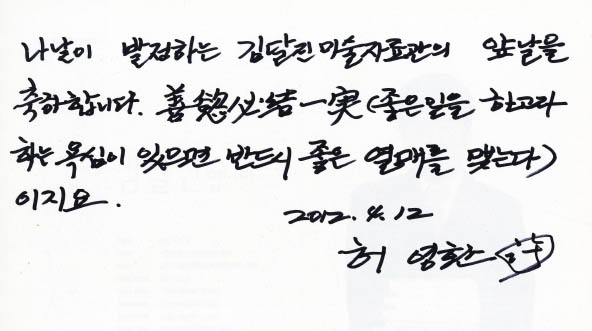 나날이 발전하는 김달진미술자료관의 앞날을
축하합니다. 善慾必結一実 (좋은일을 하고라
하는 욕심이 있으면 반드시 좋은 열매를 맺는다)
이지요.
2012. 4. 12
허 영환